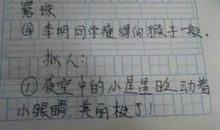 露珠
④李明同学瘦得向猴子一般.
拟人:
①夜空中的小星星眨动着
小眼睛,美丽极了!